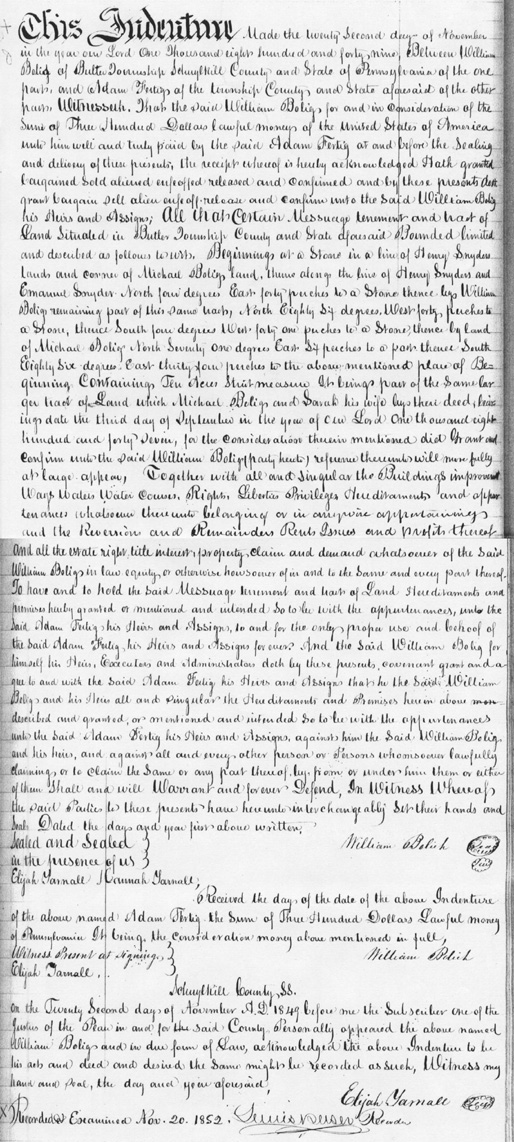 This Indenture Made the twenty Second day of November
in the year our Lord One Thousand eight hundred and forty nine, Between William
Bolig of Butler Township Schuylkill County and State of Pennsylvania of the one
part, and Adam Fertig of the township County and State aforesaid of the other
part, Witnesseth, That the said William Bolig for and in Consideration of the
Sum of Three Hundred Dollars lawful money of the United States of America
unto him well and truly paid by the said Adam Fertig at and before the Sealing
and delivery of these presents, the receipt whereof is hereby acknowledged Hath granted
bargained Sold aliened enfeoffed released and Confirmed and by these presents doth
grant bargain Sell alien enfeoff release and Confirm unto the Said William Bolig
his Heirs and Assigns, All that Certain Message tenement and tract of
Land Situated in Butler Township County and State aforesaid Bounded limited
and described as follows to wit. Beginning at a Stone in a line of Henry Snyders
lands and corner of Michael Boligs land, thence along the line of Henry Snyders and
Emanuel Snyder North four degrees East forty perches to a Stone thence by William
Bolig remaining part of this same tract, North Eighty Six degrees, West forty, perches to
a Stone, thence South four degrees West forty one perches to a Stone, thence by land
of Michael Bolig North Seventy one degrees East Six perches to a post thence South
Eighty Six degrees East thirty four perches to the above mentioned place of Be-
ginning Containing Ten Acres Strict measure It being part of the Same lar-
ger tract of Land which Michael Bolig and Sarah his wife by their deed, bear-
ing date the third day of September in the year of our Lord One thousand eight
hundred and forty Seven, for the Consideration therein mentioned did Grant and
Confirm unto the Said William Bolig (party hereto) reference thereunto will more fully
at large appear, Together with all and Singular the Buildings improvements
Ways Waters Water Courses, Rights, Liberties Privileges Hereditaments and appur
tenances whatsoever thereunto belonging or in anywise appertaining
and the Reversion and Remainders Rents Issues and profits thereof
And all the estate right, title interest, property, claim and demand whatsoever of the Said
William Bolig in law equity, or otherwise howsoever of in and to the Same and every part thereof.
To have and to hold the Said Message tenement and tract of Land Hereditaments and
premises hereby granted or mentioned and intended So to be with the appurtenances, unto the
Said Adam Fertig his Heirs and Assigns, to and for the only proper use and behoof of
the Said Adam Fertig, his Heirs and Assigns forever. And the Said William Bolig for
himself his Heirs, Executors and Administrators doth by these presents, covenant grant and a-
gree to and with the Said Adam Fertig his Heirs and Assigns that he the Said William
Bolig and his Heirs all and Singular the Hereditaments and Premises herein above men
described and granted, or mentioned and intended So to be with the appurtenances
unto the Said Adam Fertig his Heirs and Assigns, against him the Said William Bolig
and his heirs, and against all and every other person or Persons whomsoever lawfully
claiming, or to claim the Same or any part thereof, by, from or under him them or either
of them Shall and will Warrant and forever Defend, In Witness Whereof
the Said Parties to these presents have hereunto interchangeably Set their hands and
Seals Dated the day and year first above written,
Sealed and Sealed
in the presence of us
William Bolich
Elijah Yarnall Hannah Yarnall,
Received the day of the date of the above Indenture
of the above named Adam Fertig the Sum of Three Hundred Dollars Lawful money
of Pennsylvania It being the Consideration money above mentioned in full,
Witness Present at signing,
William Bolich
Elijah Yarnall,
Schuylkill County, SS.
On the Twenty Second day of November A.D. 1849 before me the Subscriber one of the
Justices of the Peace in and for the Said County Personally appeared the above named
William Bolig and in due form of Law, acknowledged the above Indenture to be
his act and deed and desired the Same might be recorded as Such, Witness my
hand and Seal, the day and year aforesaid,
Elijah Yarnall
Recorded & Examined Nov. 20. 1852. Recorder